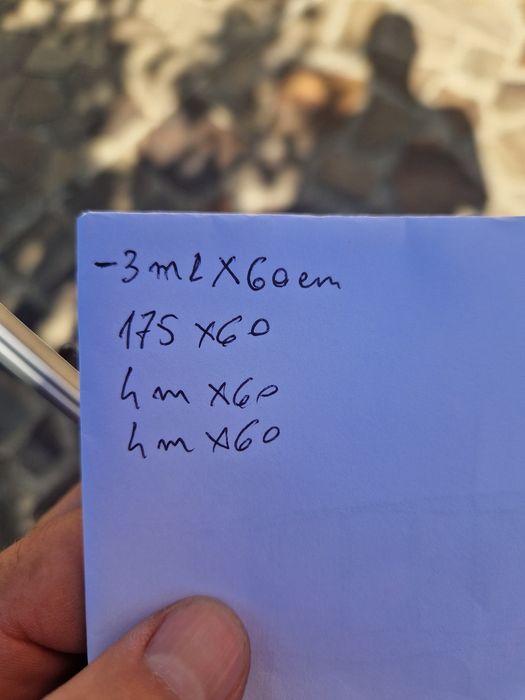 -3 ml X 60 cm
175 x60
4 m x60
4 m x60